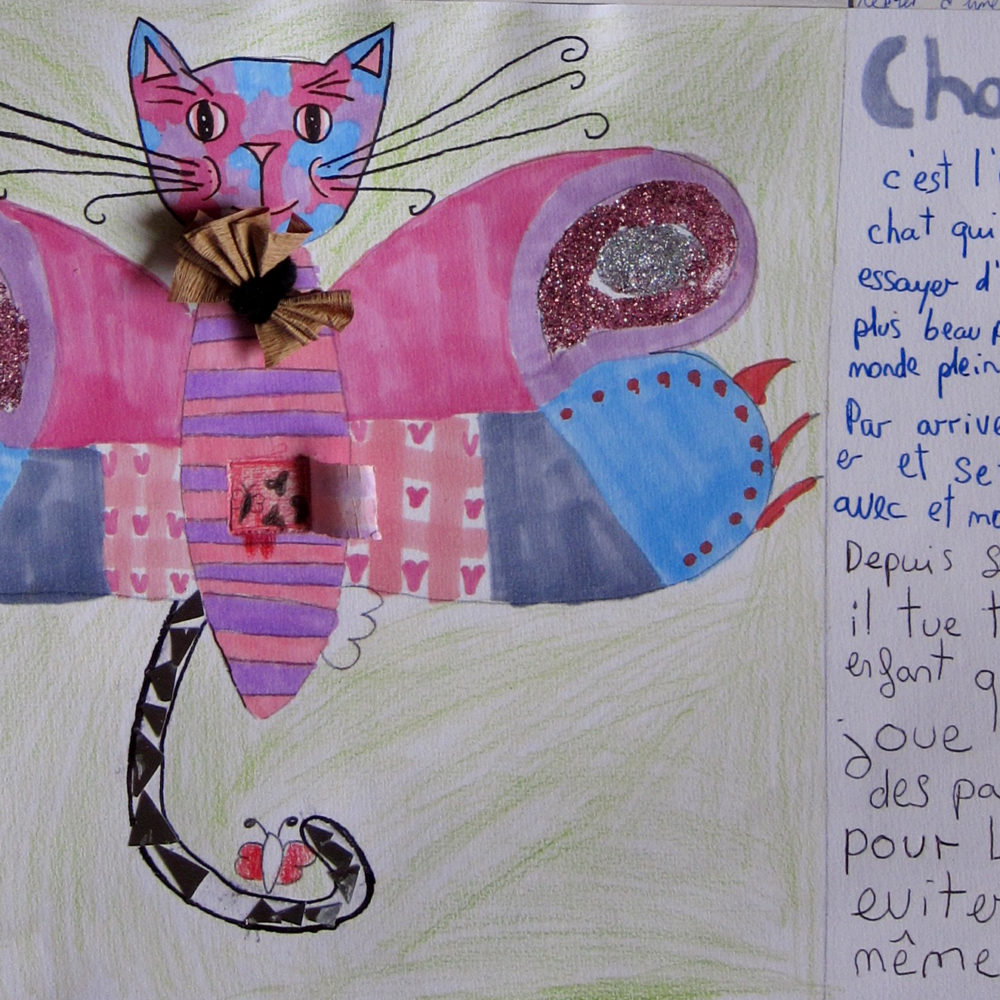 Cha
c'est l'
chat qui
essayer d'
plus beau p
monde plein
Par arrive
er et se
avec et mo
Depuis s
il tue t
enfant q
joue
des pa
pour l
eviter
même